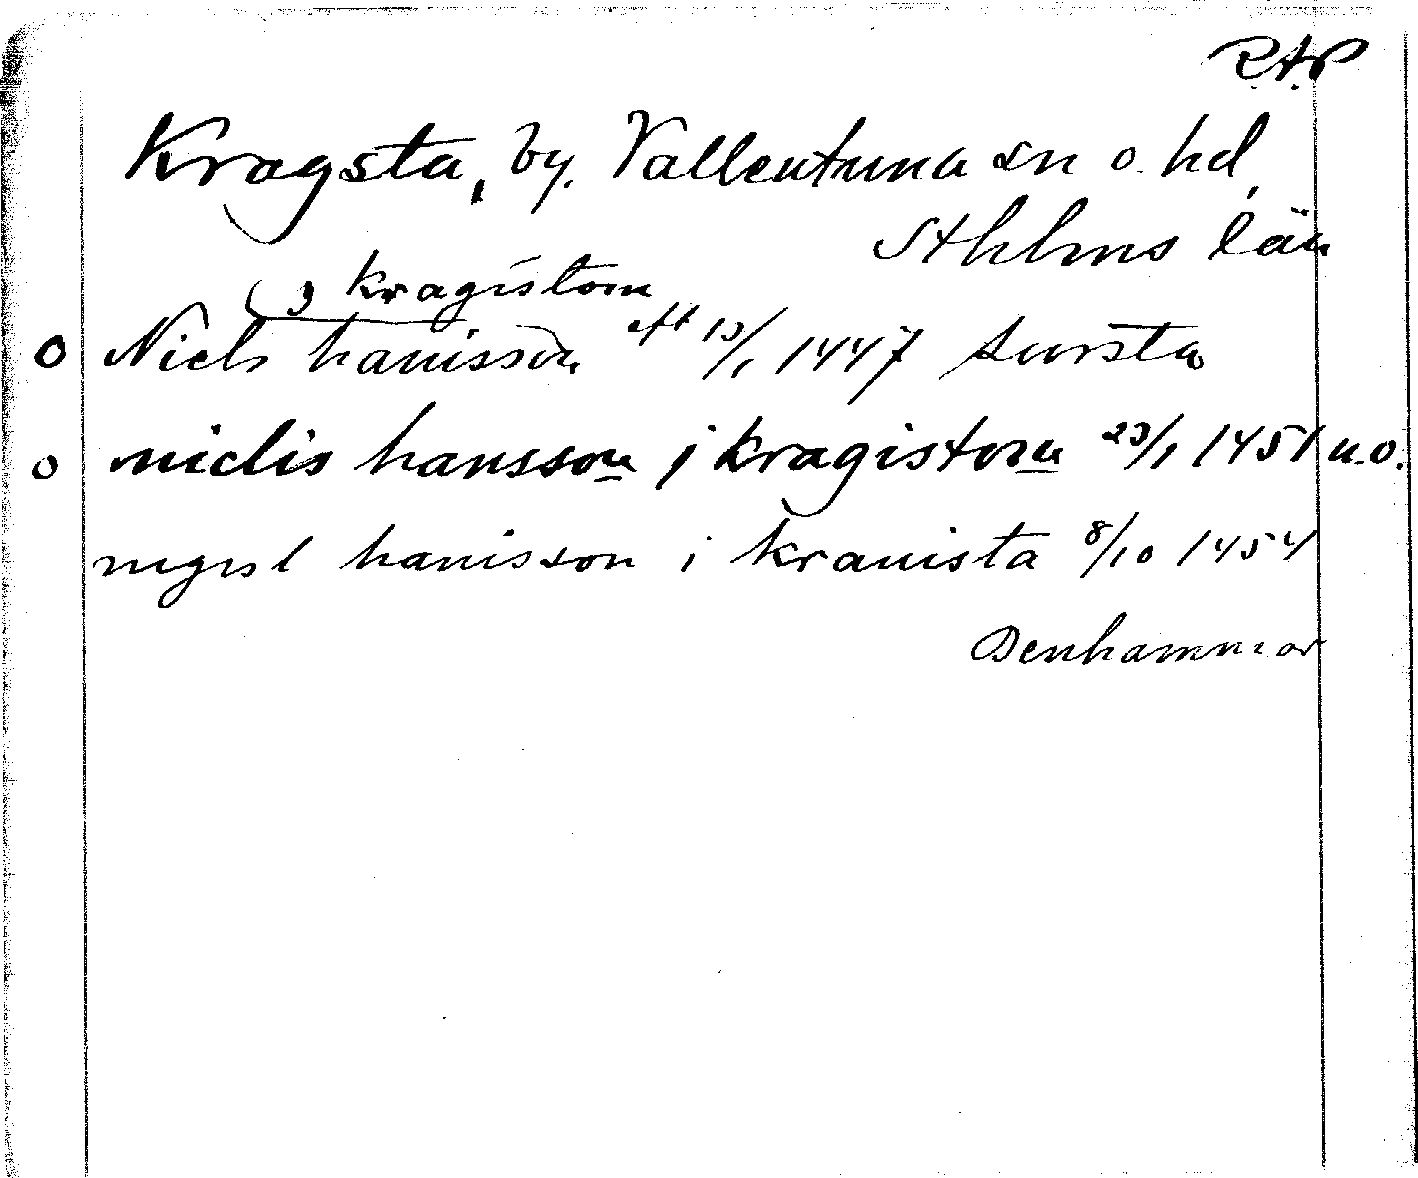 R.A.P
Kragsta, by. Vallentuna sn o. hd,
Sthlms län
j kragistom
o Niels hanisson eft 13/1 1447 Sursta
o niclis hansson j kragistom 23/1 1451 u.o.
hanisson i kranista 8/10 1454
Benhammar